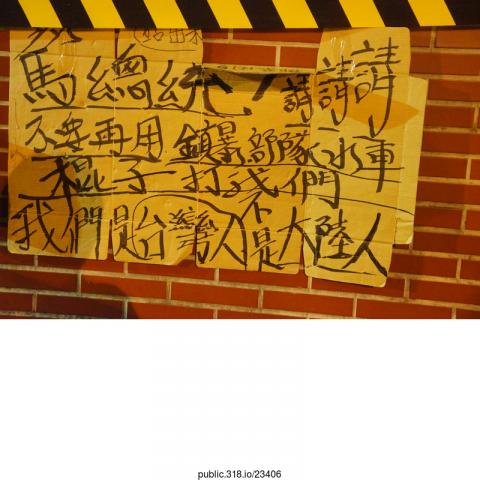 馬總統！請請請
不要再用鎮暴部隊、水車
棍子打我們
我們是台灣人不是大陸人
public.318.io/23406